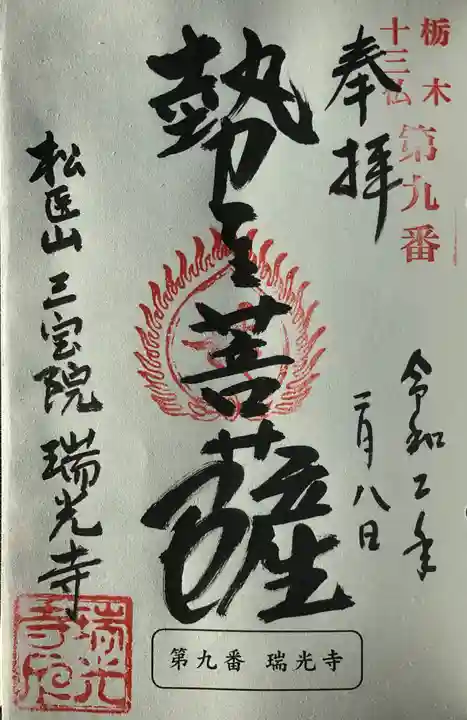 栃木
十三仏
第九番
奉拝
令和二年
二月八日
勢至菩薩
松医山三宝院瑞光寺
瑞光
寺印
第九番 瑞光寺